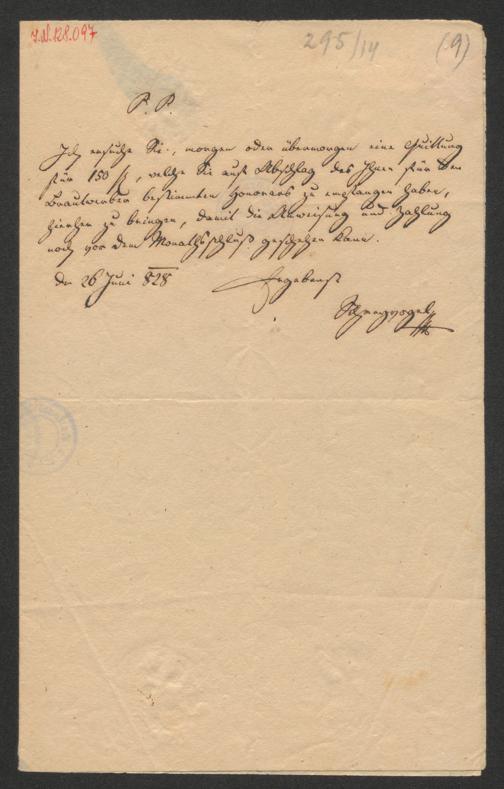 I.N. 128.097
295/14
(9)
P. P.
Ich ersuche Sie, morgen oder übermorgen eine Quittung
für 150 f, welche Sie auf Abschlag des Ihnen für den
Brautwerber bestimmten Honorars zu empfangen haben,
hierher zu bringen, damit die Anweisung und Zahlung
noch vor dem Monathsschluß geschehen kann.
den 26 Juni 828
Ergebenst
Schreyvogel